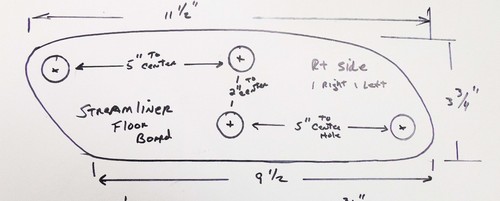 11 1/2"
5" TO
CENTER
2" TO
CENTER
Rt side
1 Right 1 Left
3 3/4"
STREAMLINER
FLOOR
BOARD
5" TO
CENTER
HOLE
9 1/2